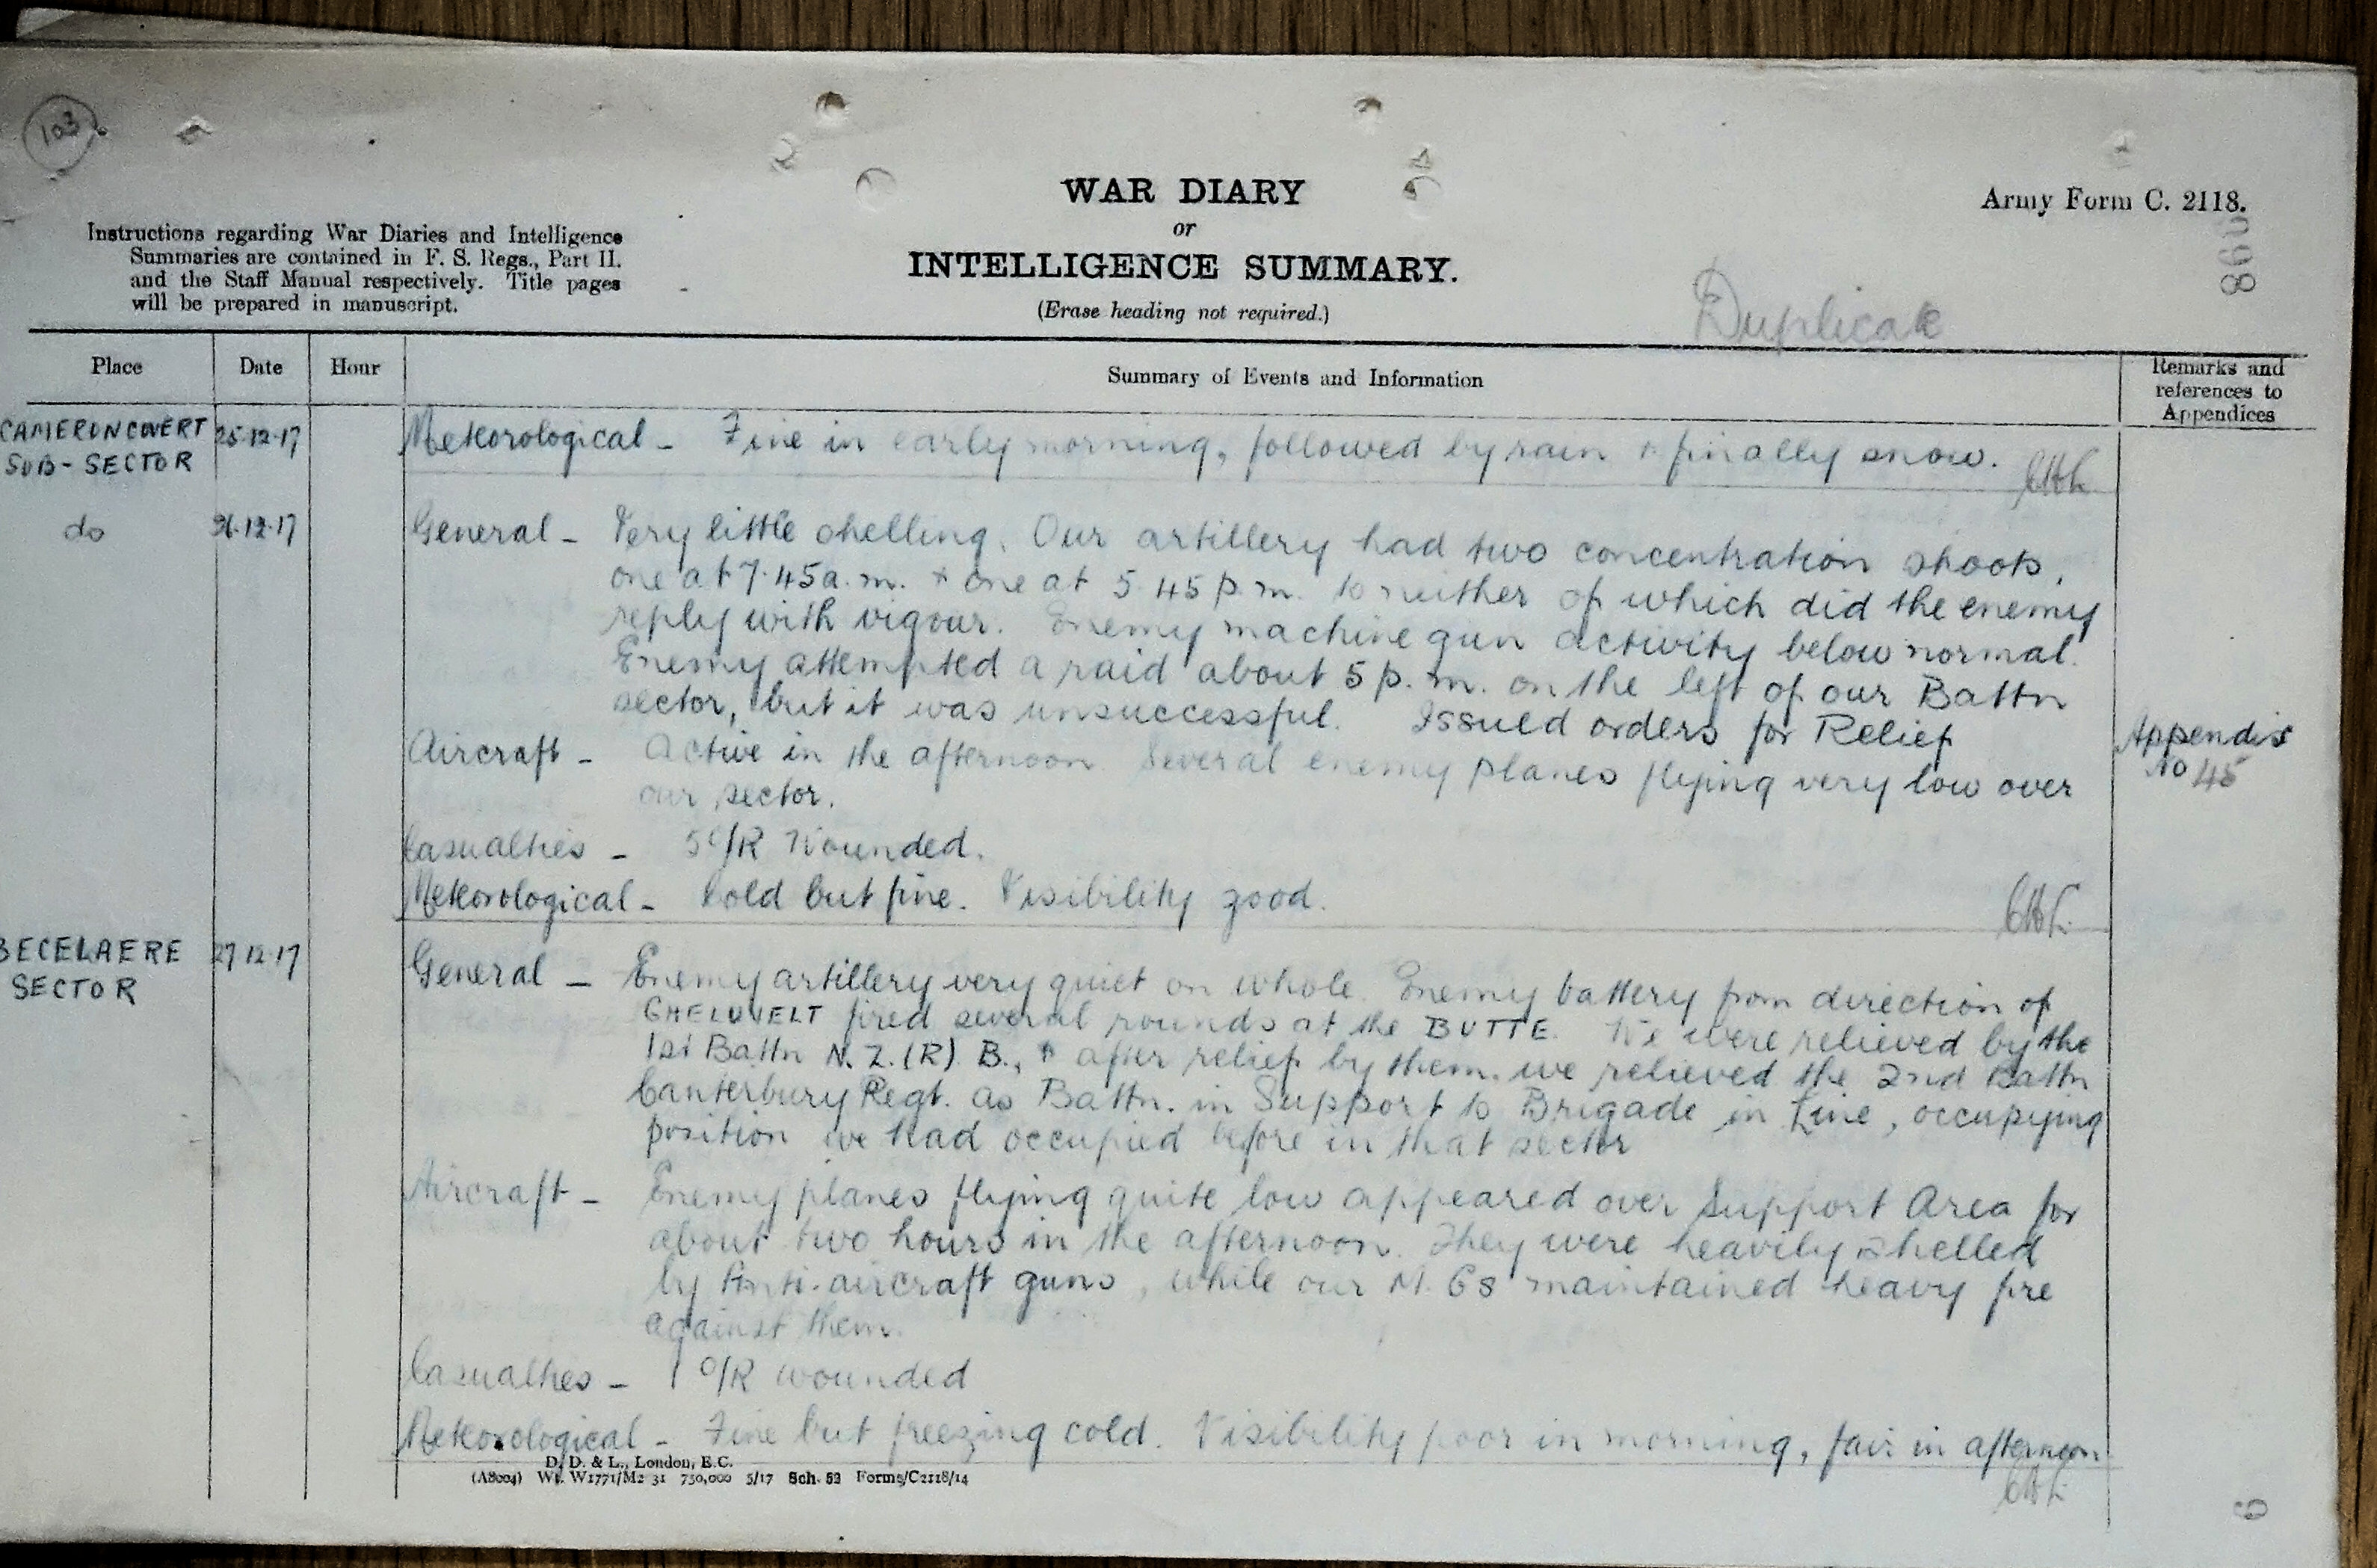 103
WAR DIARY
or
INTELLIGENCE SUMMARY.
(Erase heading not required.)
Army Form C. 2118.
Instructions regarding War Diaries and Intelligence
Summaries are contained in F. S. Regs., Part II.
and the Staff Manual respectively. Title pages
will be prepared in manuscript.
Duplicate
Place Date Hour Summary of Events and Information Remarks and
references to
Appendices
CAMERON COVERT 25.12.17 Meteorological - Fine in early morning, followed by rain & finally snow.
SUB-SECTOR
do 26.12.17 General - Very little shelling. Our artillery had two concentration shoots,
one at 7.45 a.m. & one at 5.45 p.m. to neither of which did the enemy
reply with vigour. Enemy machine gun activity below normal.
Enemy attempted a raid about 5 p.m. on the left of our Battn
sector, but it was unsuccessful. Issued orders for Relief Appendix
No 45
Aircraft - Active in the afternoon. Several enemy planes flying very low over
our sector.
Casualties - 5 O/R Wounded.
Meteorological - Cold but fine. Visibility good.
BECELAERE 27.12.17 General - Enemy artillery very quiet on whole. Enemy battery from direction of
SECTOR GHELUVELT fired several rounds at the BUTTE. We were relieved by the
1st Battn N.Z.(R).B., & after relief by them, we relieved the 2nd Battn
Canterbury Regt. as Battn. in Support to Brigade in Line, occupying
position we had occupied before in that sector
Aircraft - Enemy planes flying quite low appeared over Support Area for
about two hours in the afternoon. They were heavily shelled
by Anti-aircraft guns, while our M.Gs maintained heavy fire
against them.
Casualties - 1 O/R wounded
Meteorological - Fine but freezing cold. Visibility poor in morning, fair in afternoon
D. D. & L., London, E.C.
(A8004) Wt. W1771/M2 31 750,000 5/17 Sch. 52 Forms/C2118/14